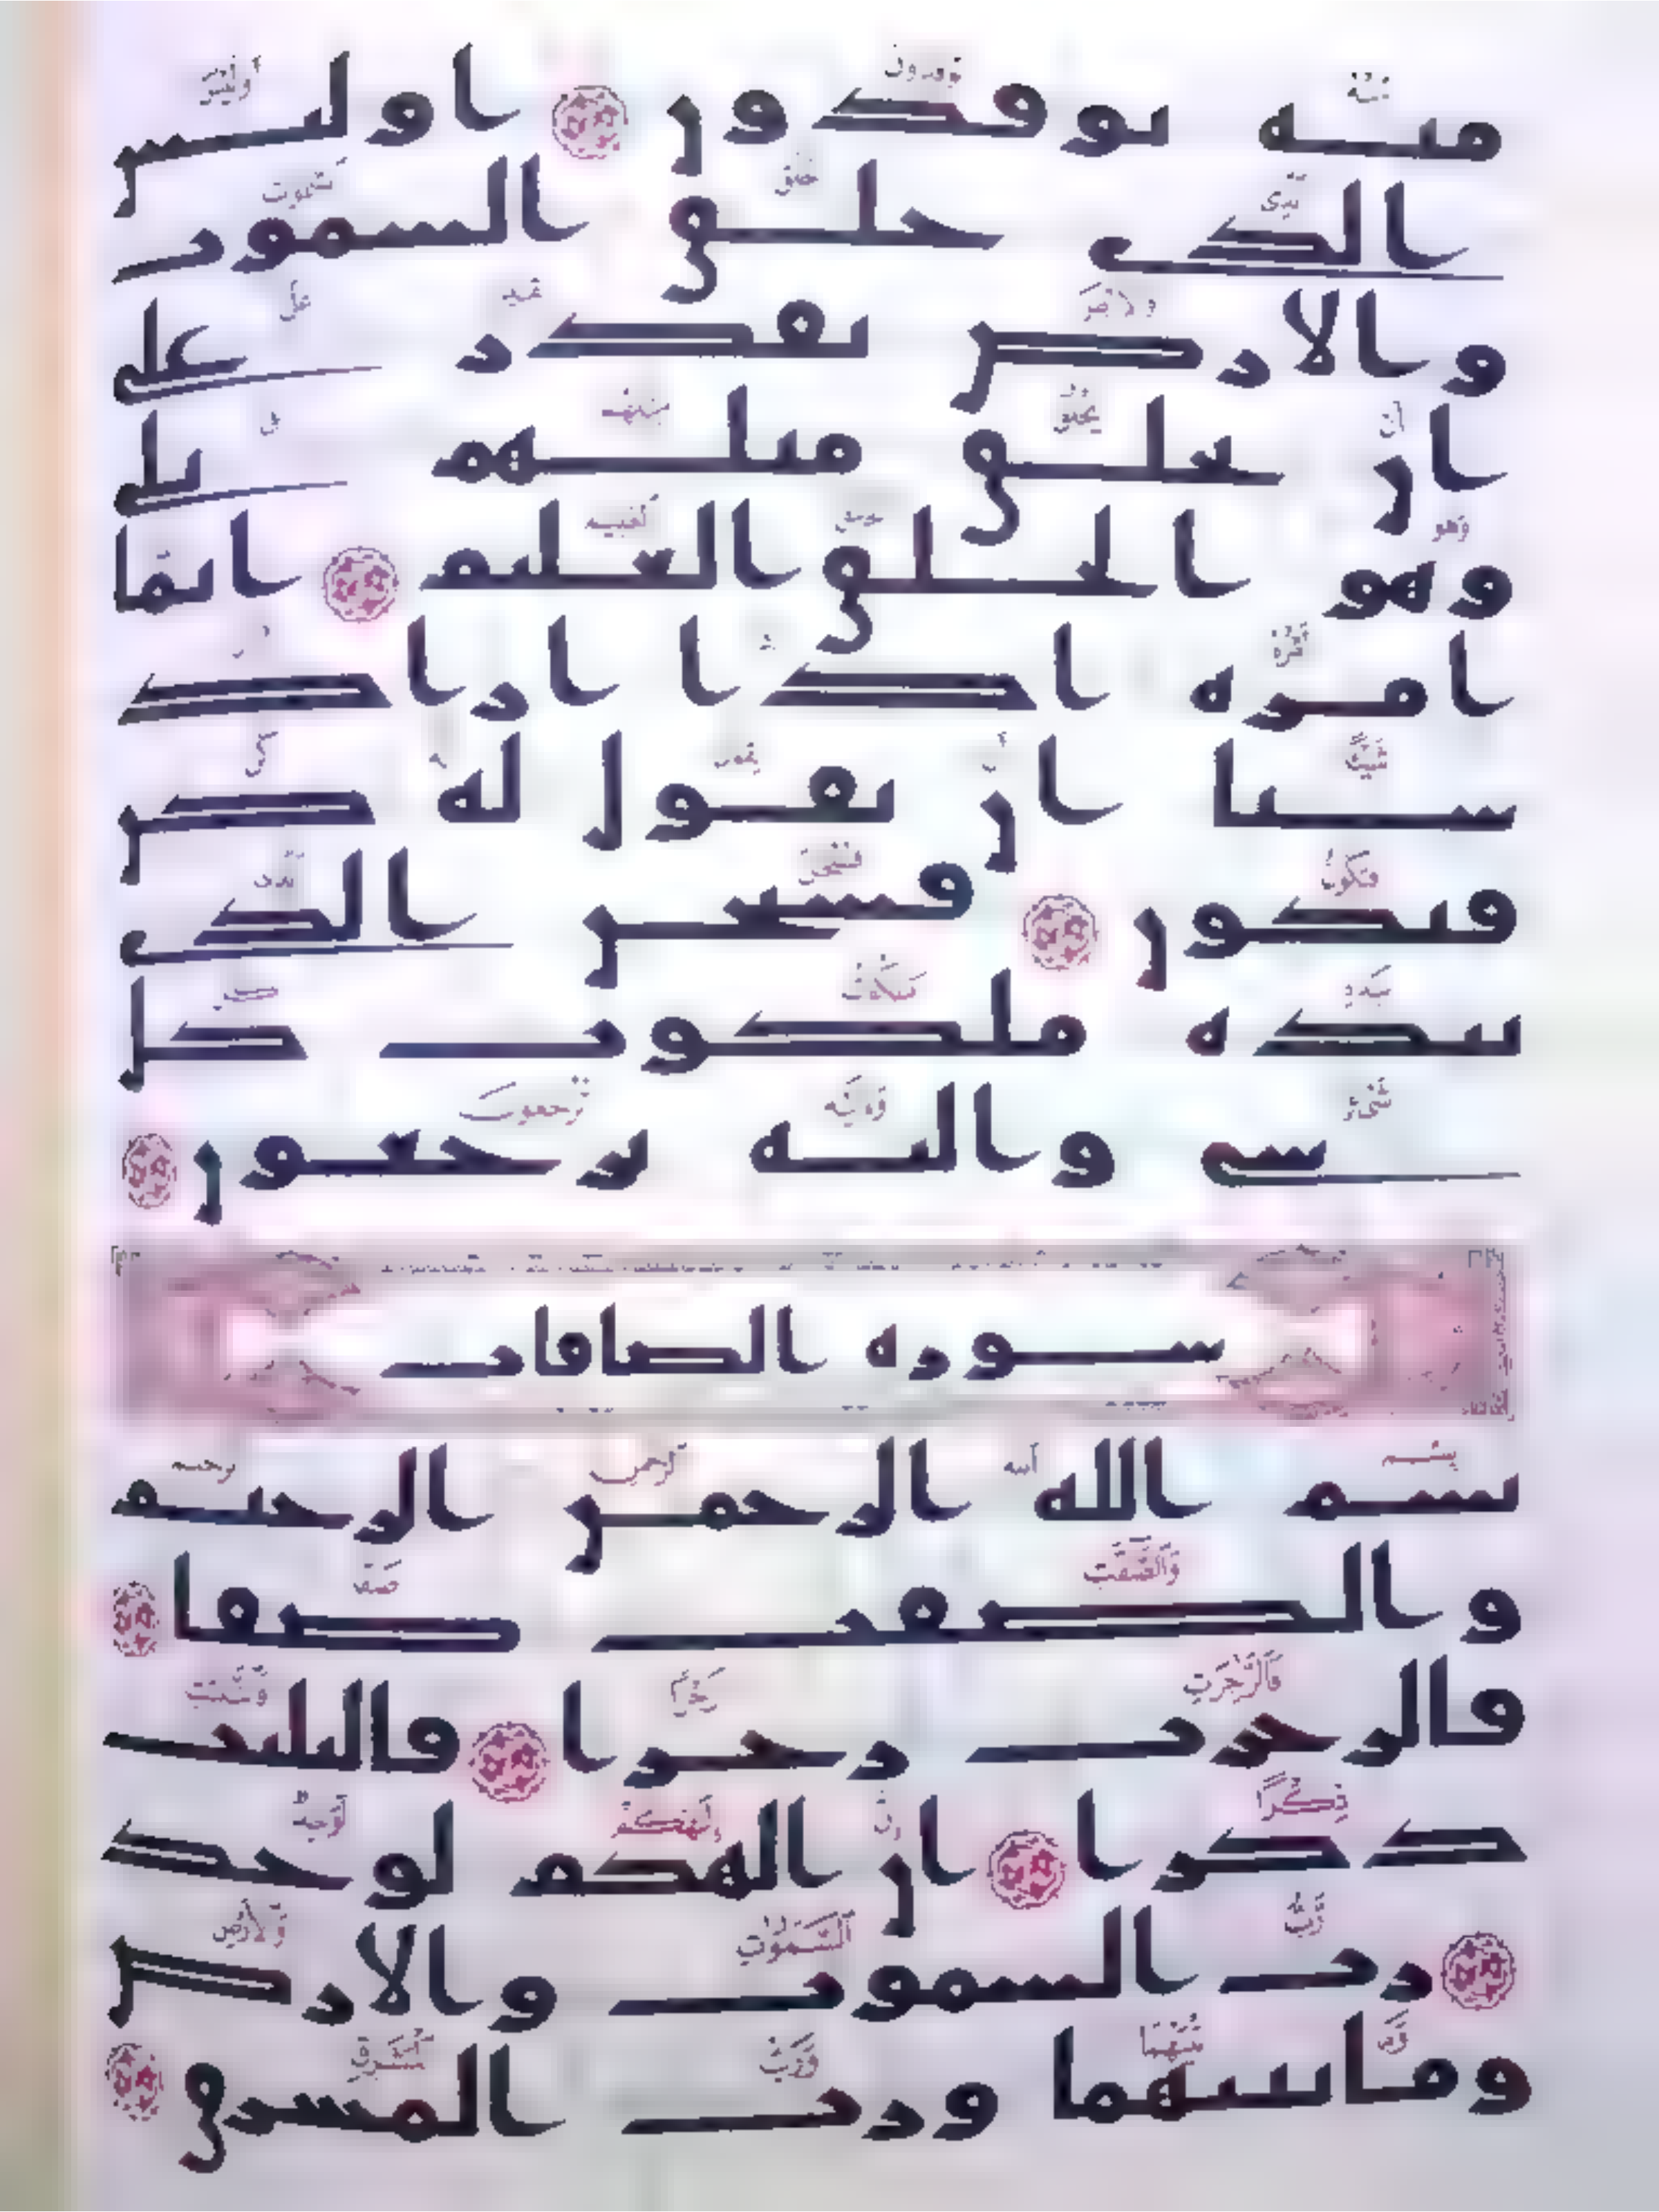 منه توقدون اوليس
الذي خلق السموت
والارض بقدر على
ان يخلق مثلهم بلى
وهو الخلق العليم انما
امره اذا اراد
شيا ان يقول له كن
فيكون فسبحن الذي
بيده ملكوت كل
شي واليه ترجعون
سورة الصافات
بسم الله الرحمن الرحيم
والصفت صفا
فالزجرت زجرا فالتليت
ذكرا ان الهكم لوحد
رب السموت والارض
وما بينهما ورب المشرق